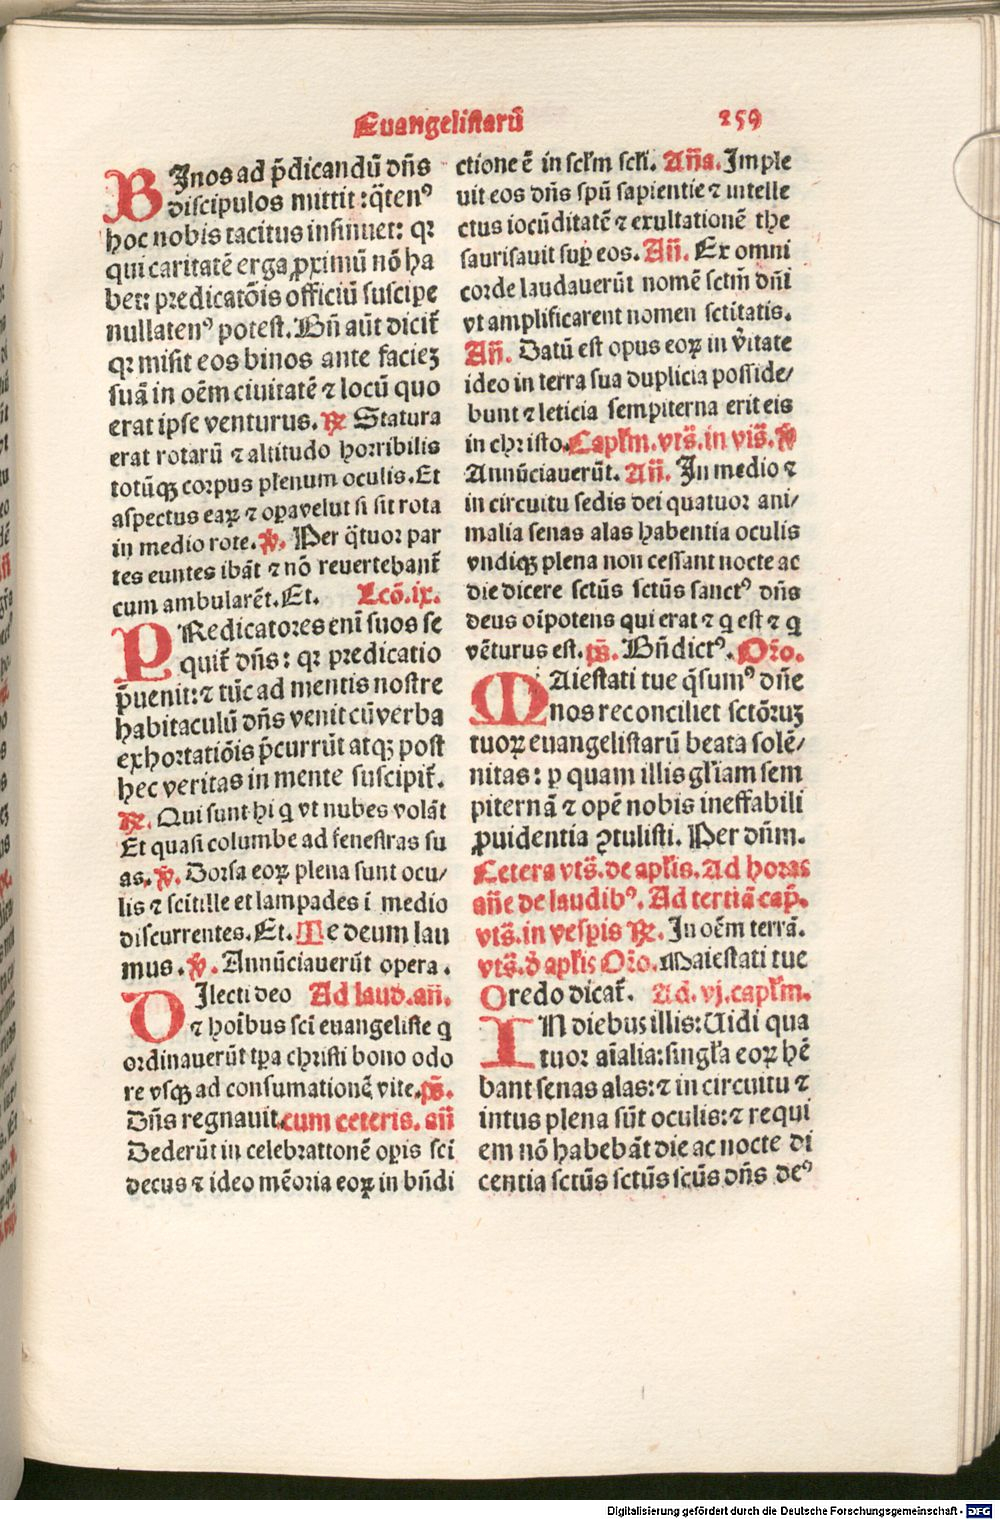 Euangelistarū 259
BInos ad p̄dicandū dn̄s
discipulos mittit : q̄tenꝰ
hoc nobis tacitus insinuet: qꝛ
qui caritatē erga ꝓximū nō ha
bet: predicatōis officiū suscipe
nullatenꝰ potest. Bn̄ aūt dicit̄
qꝛ misit eos binos ante faciez
suā in oēm ciuitatē ⁊ locū quo
erat ipse venturus. ℟ Statura
erat rotarū ⁊ altitudo horribilis
totūqꝫ corpus plenum oculis. Et
aspectus eaꝝ ⁊ opavelut si sit rota
in medio rote. ℣. Per q̄tuor par
tes euntes ibāt ⁊ nō reuertebant̄
cum ambularēt. Et. Lcō. ix.
PRedicatores eni̅ suos se
quit̄ dn̄s: qꝛ predicatio
p̄uenit: ⁊ tūc ad mentis nostre
habitaculū dn̄s venit cū verba
exhortatiōis p̄currūt atqꝫ post
hec veritas in mente suscipit̄.
℟. Qui sunt hi q vt nubes volāt
Et quasi columbe ad fenestras su
as. ℣. Dorsa eoꝝ plena sunt ocu/
lis ⁊ scitille et lampades ī medio
discurrentes. Et. Te deum lau
mus. ℣. Annūciauerūt opera.
DIlecti deo Ad laud. an̄.
⁊ hoi̅bus sci̅ euangeliste q
ordinauerūt tꝑa christi bono odo
re vsqꝫ ad consumationē vite. ps̄.
Dn̄s regnauit. cum ceteris. an̄
Dederūt in celebrattonē oꝑis sci̅
decus ⁊ ideo mēoria eoꝝ in bn̄di
ctione ē in scl̄m scl̄i. An̄a. Imple
uit eos dn̄s spū sapientie ⁊ intelle
ctus iocūditatē ⁊ exultationē the
saurisauit suꝑ eos. An̄. Ex omni
corde laudauerūt nomē sctm̄ dn̄i
vt amplificarent nomen sctitatis.
An̄. Datū est opus eoꝝ in v̄itate
ideo in terra sua duplicia posside/
bunt ⁊ leticia sempiterna erit eis
in christo. Capl̄m. vts̄. in vis̄. ℣
Annūciauerūt. An̄. In medio ⁊
in circuitu sedis dei quatuor ani/
malia senas alas habentia oculis
vndiqꝫ plena non cessant nocte ac
die dicere sctūs sctūs sanctꝰ dn̄s
deus oi̅potens qui erat ⁊ q est ⁊ q
vēturus est. ps̄. Bn̄dictꝰ. Oro̅.
MAiestati tue q̄sumꝰ dn̄e
nos reconciliet sctōruꝫ
tuoꝝ euangelistarū beata solē/
nitas: ꝑ quam illis gl̄iam sem
piternā ⁊ opē nobis ineffabili
ꝓuidentia ꝯtulisti. Per dn̄m.
Cetera vts̄. de apl̄is. Ad horas
an̄e de laudibꝰ. Ad tertiā cap̄.
vts̄. in vesꝑis ℟. In oēm terrā.
vts̄. d̄ apl̄is Oro̅. Maiestati tue
Oredo dicat̄. Ad. vj. capl̄m.
IN diebus illis: Uidi qua
tuor ai̅alia: singl̄a eoꝝ hē
bant senas alas: ⁊ in circuitu ⁊
intus plena sūt oculis: ⁊ requi
em nō habebāt die ac nocte di
centia sctūs sctūs scūs dn̄s deꝰ
Digitalisierung gefördert durch die Deutsche Forschungsgemeinschaft - DFG